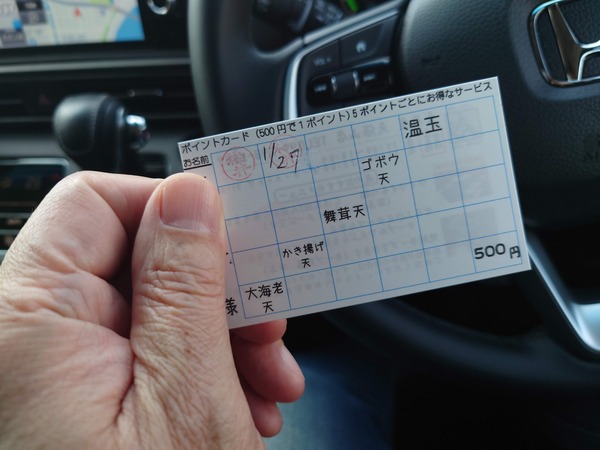 ポイントカード (500円で1ポイント) 5ポイントごとにお得なサービス
お名前
1/27
温玉
ゴボウ
天
舞茸天
かき揚げ
天
500円
様
大海老
天
VOL